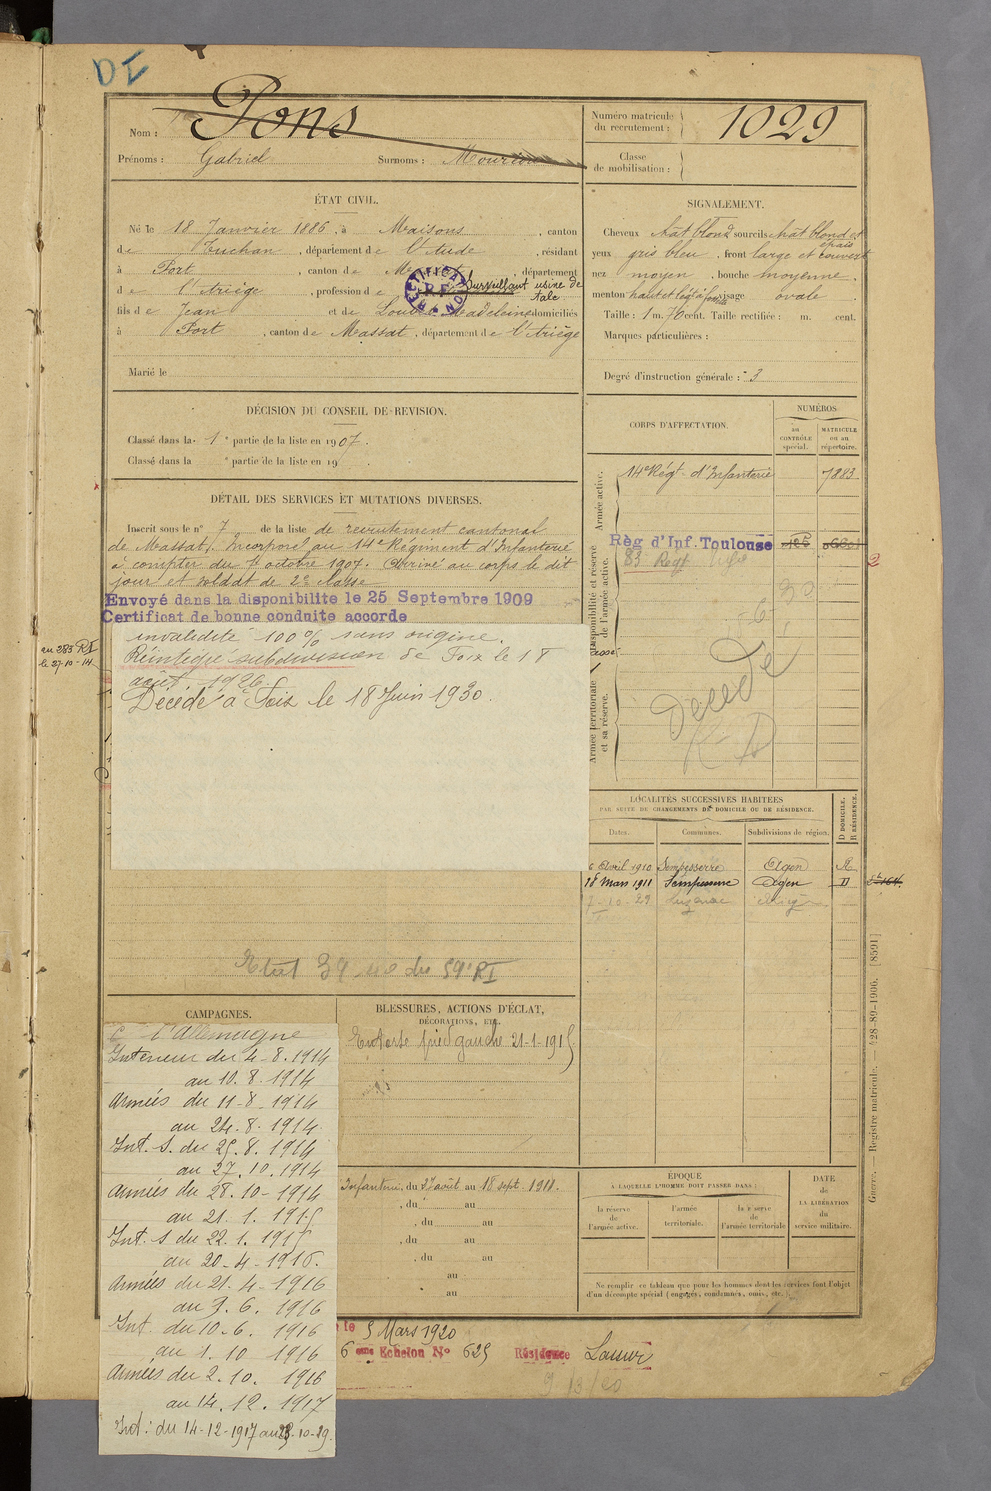 DI
Nom : Pons
Prénoms : Gabriel Surnoms :
Numéro matricule du recrutement : 1029
Classe de mobilisation :
ÉTAT CIVIL.
Né le 18 Janvier 1886, à Maisons, canton
de Tuchan, département de l'Aude, résidant
à Port, canton de, département
de l'Ariège, profession de Surveillant usine de talc
RECTIFICATION R.F.
fils de Jean et de Madeleine domiciliés
à Port, canton de Massat, département de l'Ariège
Marié le
SIGNALEMENT.
Cheveux chat blond sourcils chat blond et épais
yeux gris bleu, front large et couvert
nez moyen, bouche moyenne.
menton haut et visage ovale
Taille : 1 m. 70 cent. Taille rectifiée : m. cent.
Marques particulières :
Degré d'instruction générale : 3
DÉCISION DU CONSEIL DE REVISION.
Classé dans la 1e partie de la liste en 1907.
Classé dans la e partie de la liste en 19
DÉTAIL DES SERVICES ET MUTATIONS DIVERSES.
Inscrit sous le n° 7 de la liste de recrutement cantonal
de Massat. Incorporé au 14e Régiment d'Infanterie
à compter du 7 octobre 1907. Arrivé au corps le dit
jour et soldat de 2e classe
Envoyé dans la disponibilité le 25 Septembre 1909
Certificat de bonne conduite accordé
invalidité 100% sans origine.
Réintégré subdivision de Foix le 18
août 1926.
Décédé à Foix le 18 Juin 1930.
au 283 RI
le 27-10-14
CORPS D'AFFECTATION.
NUMÉROS
AU CONTRÔLE spécial.
MATRICULE ou au répertoire.
Armée active.
14e Régt d'Infanterie 7883
Disponibilité et réserve de l'armée active.
Règ d'Inf. Toulouse
83 Regt Infie
Armée territoriale et sa réserve.
Decede
LOCALITÉS SUCCESSIVES HABITÉES
PAR SUITE DE CHANGEMENTS DE DOMICILE OU DE RÉSIDENCE.
Dates. Communes. Subdivisions de région.
D DOMICILE. R RÉSIDENCE.
6 Avril 1910 Sempesserre Agen R
18 Mars 1911 Sempesserre Agen D
7-10-29 Luzenac Ariège
Etat 39-40 du 59e RI
CAMPAGNES.
C l'Allemagne
Intérieur du 4-8.1914
au 10.8.1914
Armées du 11-8.1914
au 24.8.1914
Int. S. du 25.8.1914
au 27.10.1914
Armées du 28.10-1914
au 21.1.1915
Int. S du 22.1.1915
au 20-4-1916.
Armées du 21.4-1916
au 9.6.1916
Int. du 10-6.1916
au 1.10 1916
Armées du 2.10.1916
au 14.12.1917
Int : du 14-12-1917 au 23-10-19.
BLESSURES, ACTIONS D'ÉCLAT,
DÉCORATIONS, ETC.
Entorse pied gauche 21-1-1915
Infanterie, du 27 août au 18 sept. 1911.
, du au
, du au
, du au
, du au
au
au
ÉPOQUE
À LAQUELLE L'HOMME DOIT PASSER DANS :
la réserve de l'armée active.
l'armée territoriale.
la réserve de l'armée territoriale
DATE de LA LIBÉRATION du service militaire.
Ne remplir ce tableau que pour les hommes dont les services font l'objet
d'un décompte spécial (engagés, condamnés, omis, etc.).
le 5 Mars 1920
6 eme Echelon N° 625 Résidence Lassur
Guerre. — Registre matricule. — 428-89-1906. [8591]